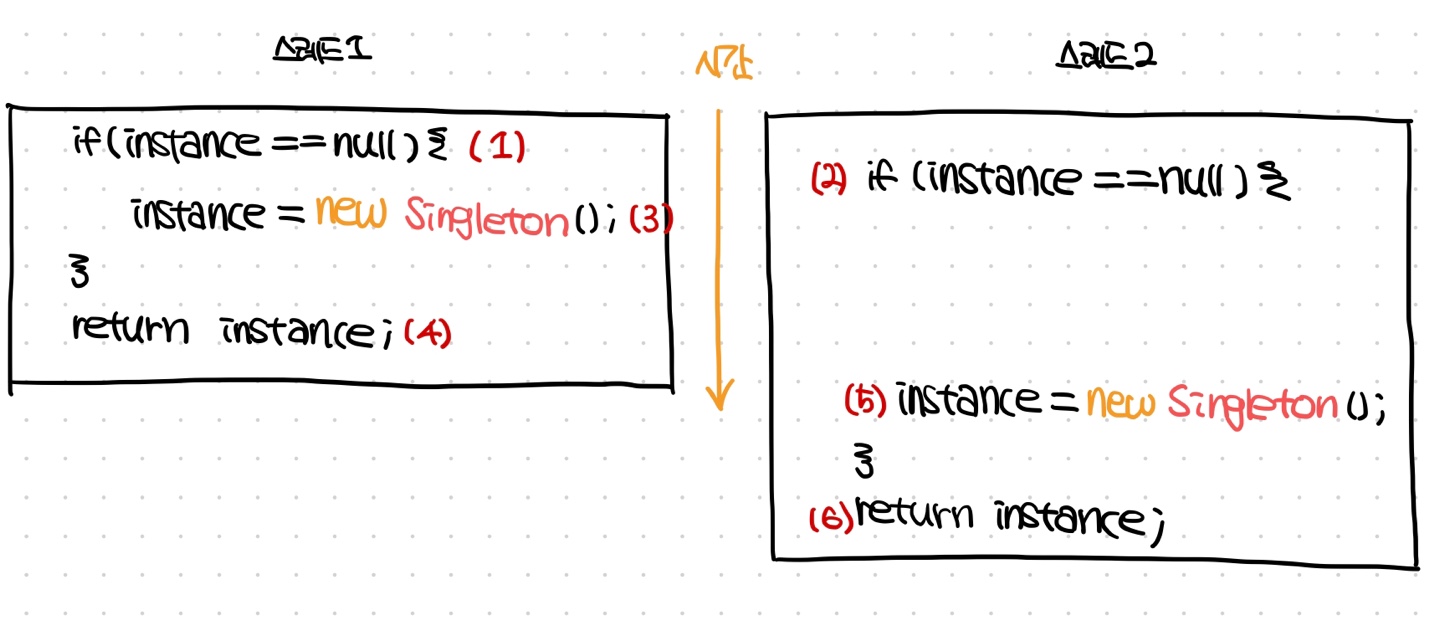 스레드1
if(instance == null) { (1)
instance = new Singleton(); (3)
}
return instance; (4)
시간
스레드2
(2) if (instance ==null) {
(5) instance = new Singleton();
}
(6) return instance;